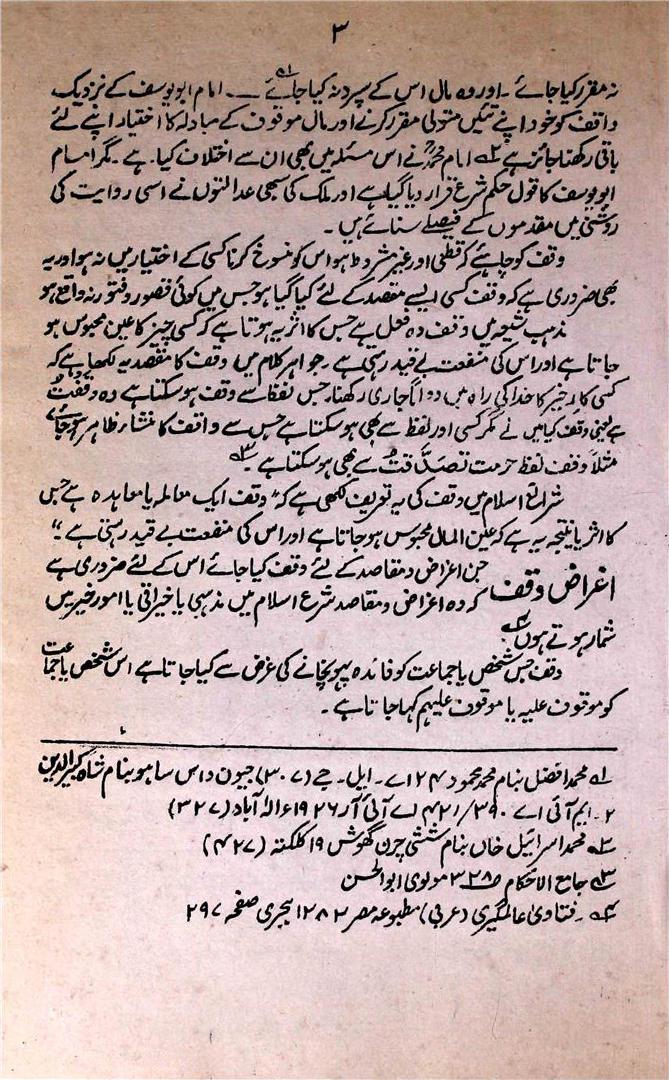 ۳
نہ مقرر کیا جائے ۔ اور وہ مال اس کے سپرد نہ کیا جائے ؎۱ ــــ امام ابو یوسف کے نزدیک
واقف کو خود اپنے تئیں متولی مقرر کرنے اور مال موقوف کے مبادلہ کا اختیار اپنے لئے
باقی رکھنا جائز ہے ؎۲ امام محمدؒ نے اس مسئلہ میں بھی ان سے اختلاف کیا ہے ۔ مگر امام
ابو یوسف کا قول حکم شرع قرار دیا گیا ہے اور ملک کی سبھی عدالتوں نے اسی روایت کی
روشنی میں مقدموں کے فیصلے سنائے ہیں ۔
وقف کو چاہئے کہ قطعی اور غیر مشروط ہو اس کو منسوخ کرنا کسی کے اختیار میں نہ ہو اور یہ
بھی ضروری ہے کہ وقف کسی ایسے مقصد کے لئے کیا گیا ہو جس میں کوئی قصور و فتور نہ واقع ہو
مذہب شیعہ میں وقف وہ فعل ہے جس کا اثر یہ ہوتا ہے کہ کسی چیز کا عین محبوس ہو
جاتا ہے اور اس کی منفعت بے قید رہتی ہے ۔ جواہر کلام میں وقف کا مقصد یہ لکھا ہے کہ
کسی کار خیر کا خدا کی راہ میں دواماً جاری رکھنا، جس لفظ سے وقف ہو سکتا ہے وہ وقفتُ
ہے یعنی وقف کیا میں نے مگر کسی اور لفظ سے بھی ہو سکتا ہے جس سے واقف کا منشاء ظاہر ہو جائے
مثلاً وقف لفظ حرمت تصدّقتُ سے بھی ہو سکتا ہے ۔ ؎۳
شرائع اسلام میں وقف کی یہ تعریف لکھی ہے کہ "وقف ایک معاملہ یا معاہدہ ہے جس
کا اثر یا نتیجہ یہ ہے کہ عین المال محبوس ہو جاتا ہے اور اس کی منفعت بے قید رہتی ہے ۔"
اغراض وقف جن اغراض و مقاصد کے لئے وقف کیا جائے اس کے لئے ضروری ہے
کہ وہ اغراض و مقاصد شرع اسلام میں مذہبی یا خیراتی یا امور خیر میں
شمار ہوتے ہوں ؎۴
وقف جس شخص یا جماعت کو فائدہ پہونچانے کی غرض سے کیا جاتا ہے اس شخص یا جماعت
کو موقوف علیہ یا موقوف علیہم کہا جاتا ہے ۔
؎۱ محمد افضل بنام محمد محمود ۲۴ اے ۔ ایل ۔ جے (۳۰۷) جیون داس ساہو بنام شاہ کبیر الدین
۲ ۔ ایم آئی اے ۳۹۰/۴۲۱ اے آئی آر ۱۹۲۶ء الہ آباد (۳۲۷)
؎۲ محمد اسرائیل خاں بنام ششی چرن گھوش ۱۹ کلکتہ (۴۲۷)
؎۳ جامع الاحکام مولوی ابو الحسن
؎۴ ۔ فتاویٰ عالمگیری (عربی) مطبوعہ مصر ۱۲۸۳ ہجری صفحہ ۲۹۷